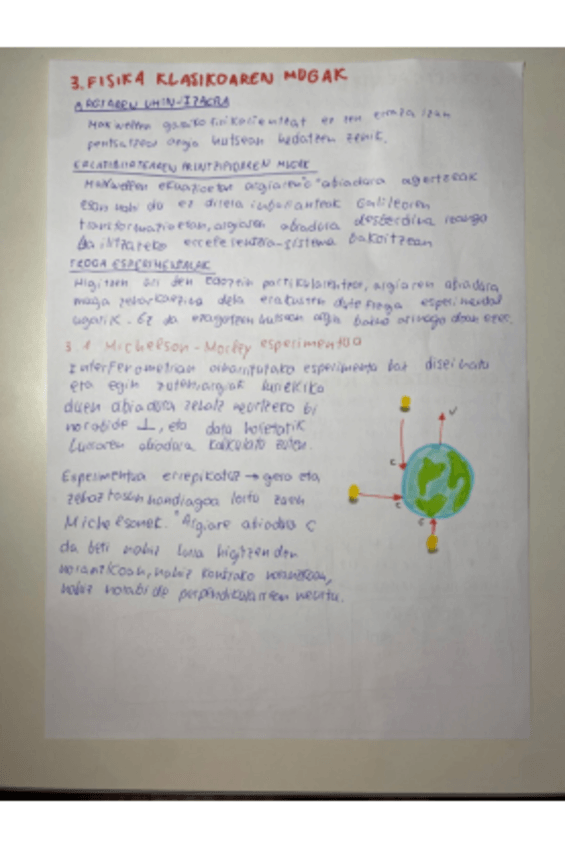 3. FISIKA KLASIKOAREN MUGAK
ARGIAREN UHIN-IZAERA
Maxwellen garaiko fisikarientzat ez zen erraza izan
pentsatzea argia hutsean hedatzen zenik.
ERLATIBITATEAREN PRINTZIPIOAREN MUGAK
Maxwellen ekuazioetan argiaren "c" abiadura agertzeak
esan nahi du ez direla inbarianteak Galileoren
transformazioetan, argiaren abiadura desberdina izango
da erreferentzia-sistema bakoitzean
FROGA ESPERIMENTALAK
Higitzen ari den edozein partikularentzat, argiaren abiadura
muga zeharkaezina dela erakusten dute froga esperimental
ugarik. Ez da ezagutzen hutsean argia baino arinago doan ezer.
3.1 Michelson-Morley esperimentua
Interferometrian oinarritutako esperimentu bat diseinatu
eta egin zuten, argiak lurrekiko
duen abiadura zehatz neurtzeko bi
norabide ⊥, eta datu horietatik
Lurraren abiadura kalkulatu zuten.
Esperimentua errepikatuz → gero eta
zehaztasun handiagoa lortu zuen
Michelsonek. "Argiare abiadura c
da beti nahiz lurra higitzen den
noranzkoan, nahiz kontrako noranzkoan,
nahiz norabide perpendikularrean neurtu.
v
c
c
c